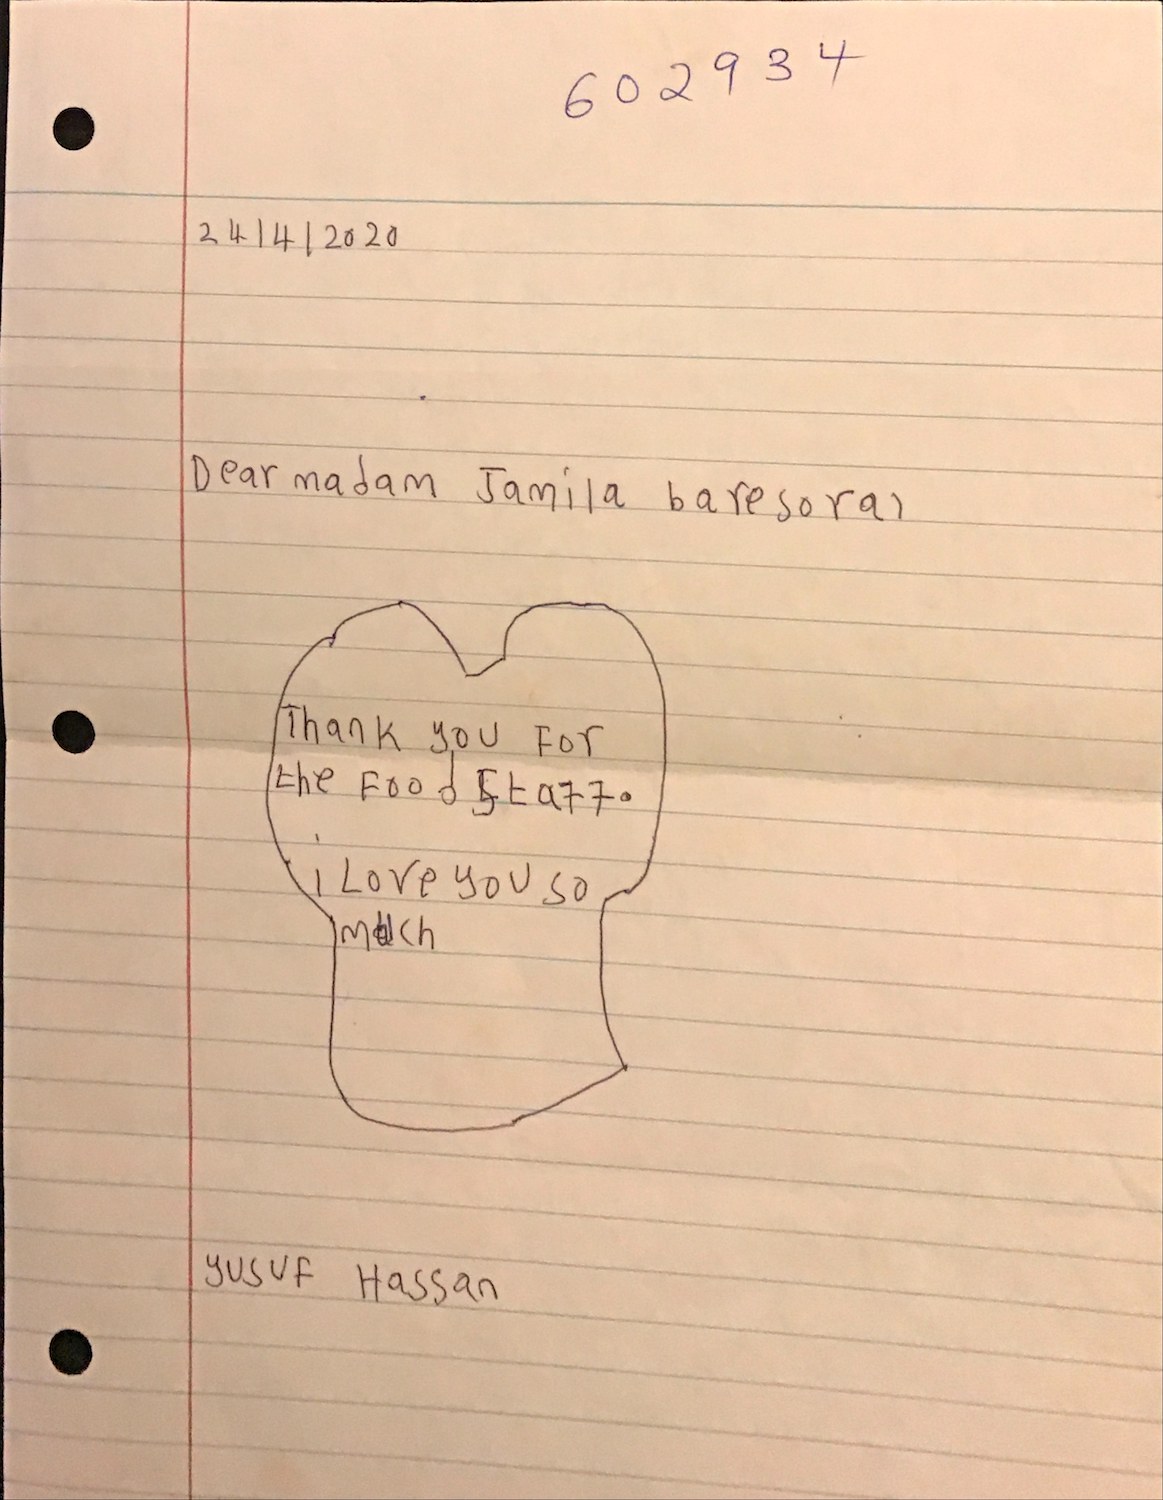 602934
24/4/2020
Dear madam Jamila baresorai
Thank you For
the Food Staff.
i Love you so
much
yusuf Hassan